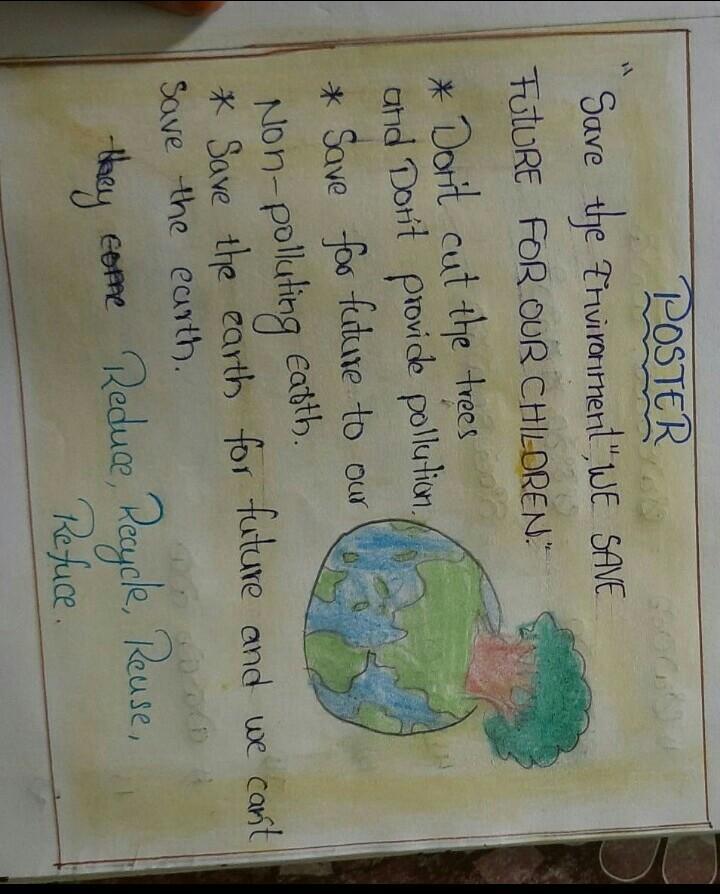 POSTER
"Save the Environment", WE SAVE
FUTURE FOR OUR CHILDREN."
* Don't cut the trees
and Don't provide pollution.
* Save for future to our
Non-polluting earth.
* Save the earth for future and we can't
save the earth.
they come Reduce, Recycle, Reuse,
Refuce.